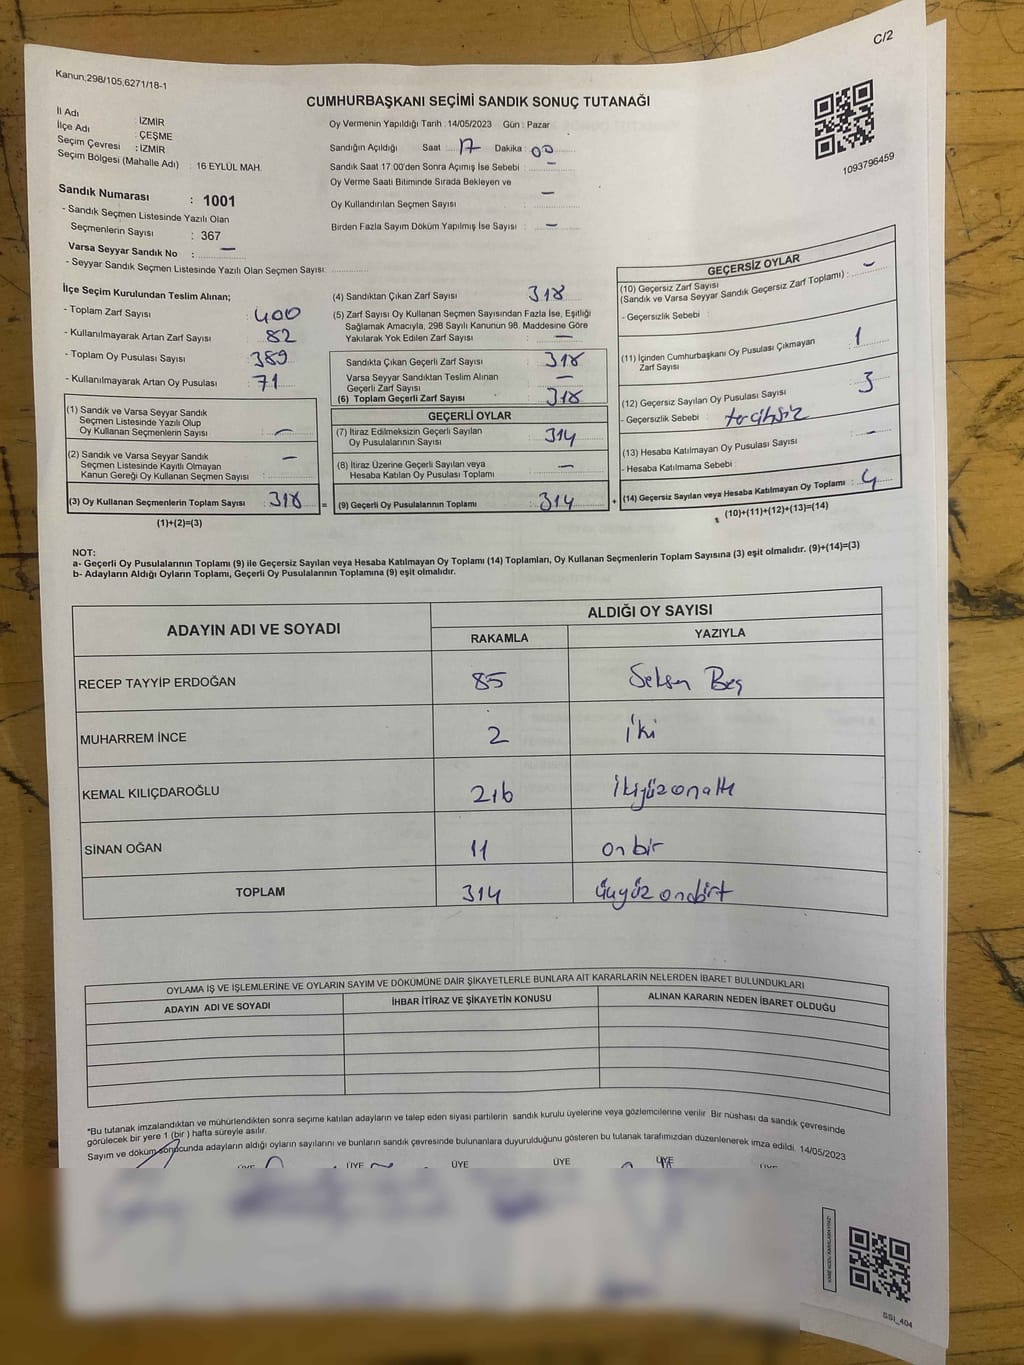 C/2
Kanun;298/105,6271/18-1
CUMHURBAŞKANI SEÇİMİ SANDIK SONUÇ TUTANAĞI
1093796459
İl Adı : İZMİR
İlçe Adı : ÇEŞME
Seçim Çevresi : İZMİR
Seçim Bölgesi (Mahalle Adı) : 16 EYLÜL MAH.
Sandık Numarası : 1001
- Sandık Seçmen Listesinde Yazılı Olan
Seçmenlerin Sayısı : 367
Varsa Seyyar Sandık No : —
- Seyyar Sandık Seçmen Listesinde Yazılı Olan Seçmen Sayısı:
Oy Vermenin Yapıldığı Tarih :14/05/2023 Gün : Pazar
Sandığın Açıldığı Saat 17 Dakika : 00
Sandık Saat 17:00'den Sonra Açımış İse Sebebi : —
Oy Verme Saati Bitiminde Sırada Bekleyen ve
Oy Kullandırılan Seçmen Sayısı : —
Birden Fazla Sayım Döküm Yapılmış İse Sayısı : —
İlçe Seçim Kurulundan Teslim Alınan;
- Toplam Zarf Sayısı : 400
- Kullanılmayarak Artan Zarf Sayısı : 82
- Toplam Oy Pusulası Sayısı : 389
- Kullanılmayarak Artan Oy Pusulası : 71
(1) Sandık ve Varsa Seyyar Sandık
Seçmen Listesinde Yazılı Olup
Oy Kullanan Seçmenlerin Sayısı : —
(2) Sandık ve Varsa Seyyar Sandık
Seçmen Listesinde Kayıtlı Olmayan
Kanun Gereği Oy Kullanan Seçmen Sayısı : —
(3) Oy Kullanan Seçmenlerin Toplam Sayısı : 318 =
(1)+(2)=(3)
(4) Sandıktan Çıkan Zarf Sayısı : 318
(5) Zarf Sayısı Oy Kullanan Seçmen Sayısından Fazla İse, Eşitliği
Sağlamak Amacıyla, 298 Sayılı Kanunun 98. Maddesine Göre
Yakılarak Yok Edilen Zarf Sayısı : —
Sandıkta Çıkan Geçerli Zarf Sayısı : 318
Varsa Seyyar Sandıktan Teslim Alınan
Geçerli Zarf Sayısı : —
(6) Toplam Geçerli Zarf Sayısı : 318
GEÇERLİ OYLAR
(7) İtiraz Edilmeksizin Geçerli Sayılan
Oy Pusulalarının Sayısı : 314
(8) İtiraz Üzerine Geçerli Sayılan veya
Hesaba Katılan Oy Pusulası Toplamı : —
(9) Geçerli Oy Pusulalarının Toplamı : 314 +
GEÇERSİZ OYLAR
(10) Geçersiz Zarf Sayısı
(Sandık ve Varsa Seyyar Sandık Geçersiz Zarf Toplamı) : —
- Geçersizlik Sebebi :
(11) İçinden Cumhurbaşkanı Oy Pusulası Çıkmayan
Zarf Sayısı : 1
(12) Geçersiz Sayılan Oy Pusulası Sayısı : 3
- Geçersizlik Sebebi : tercihsiz
(13) Hesaba Katılmayan Oy Pusulası Sayısı : —
- Hesaba Katılmama Sebebi :
(14) Geçersiz Sayılan veya Hesaba Katılmayan Oy Toplamı : 4
(10)+(11)+(12)+(13)=(14)
NOT:
a- Geçerli Oy Pusulalarının Toplamı (9) ile Geçersiz Sayılan veya Hesaba Katılmayan Oy Toplamı (14) Toplamları, Oy Kullanan Seçmenlerin Toplam Sayısına (3) eşit olmalıdır. (9)+(14)=(3)
b- Adayların Aldığı Oyların Toplamı, Geçerli Oy Pusulalarının Toplamına (9) eşit olmalıdır.
ADAYIN ADI VE SOYADI ALDIĞI OY SAYISI
RAKAMLA YAZIYLA
RECEP TAYYİP ERDOĞAN 85 Seksen Beş
MUHARREM İNCE 2 İki
KEMAL KILIÇDAROĞLU 216 İkiyüzonaltı
SİNAN OĞAN 11 onbir
TOPLAM 314 üçyüz ondört
OYLAMA İŞ VE İŞLEMLERİNE VE OYLARIN SAYIM VE DÖKÜMÜNE DAİR ŞİKAYETLERLE BUNLARA AİT KARARLARIN NELERDEN İBARET BULUNDUKLARI
ADAYIN ADI VE SOYADI İHBAR İTİRAZ VE ŞİKAYETİN KONUSU ALINAN KARARIN NEDEN İBARET OLDUĞU
*Bu tutanak imzalandıktan ve mühürlendikten sonra seçime katılan adayların ve talep eden siyasi partilerin sandık kurulu üyelerine veya gözlemcilerine verilir. Bir nüshası da sandık çevresinde
görülecek bir yere 1 (bir ) hafta süreyle asılır.
Sayım ve döküm sonucunda adayların aldığı oyların sayılarını ve bunların sandık çevresinde bulunanlara duyurulduğunu gösteren bu tutanak tarafımızdan düzenlenerek imza edildi. 14/05/2023
ÜYE ÜYE ÜYE ÜYE ÜYE
SSI_404